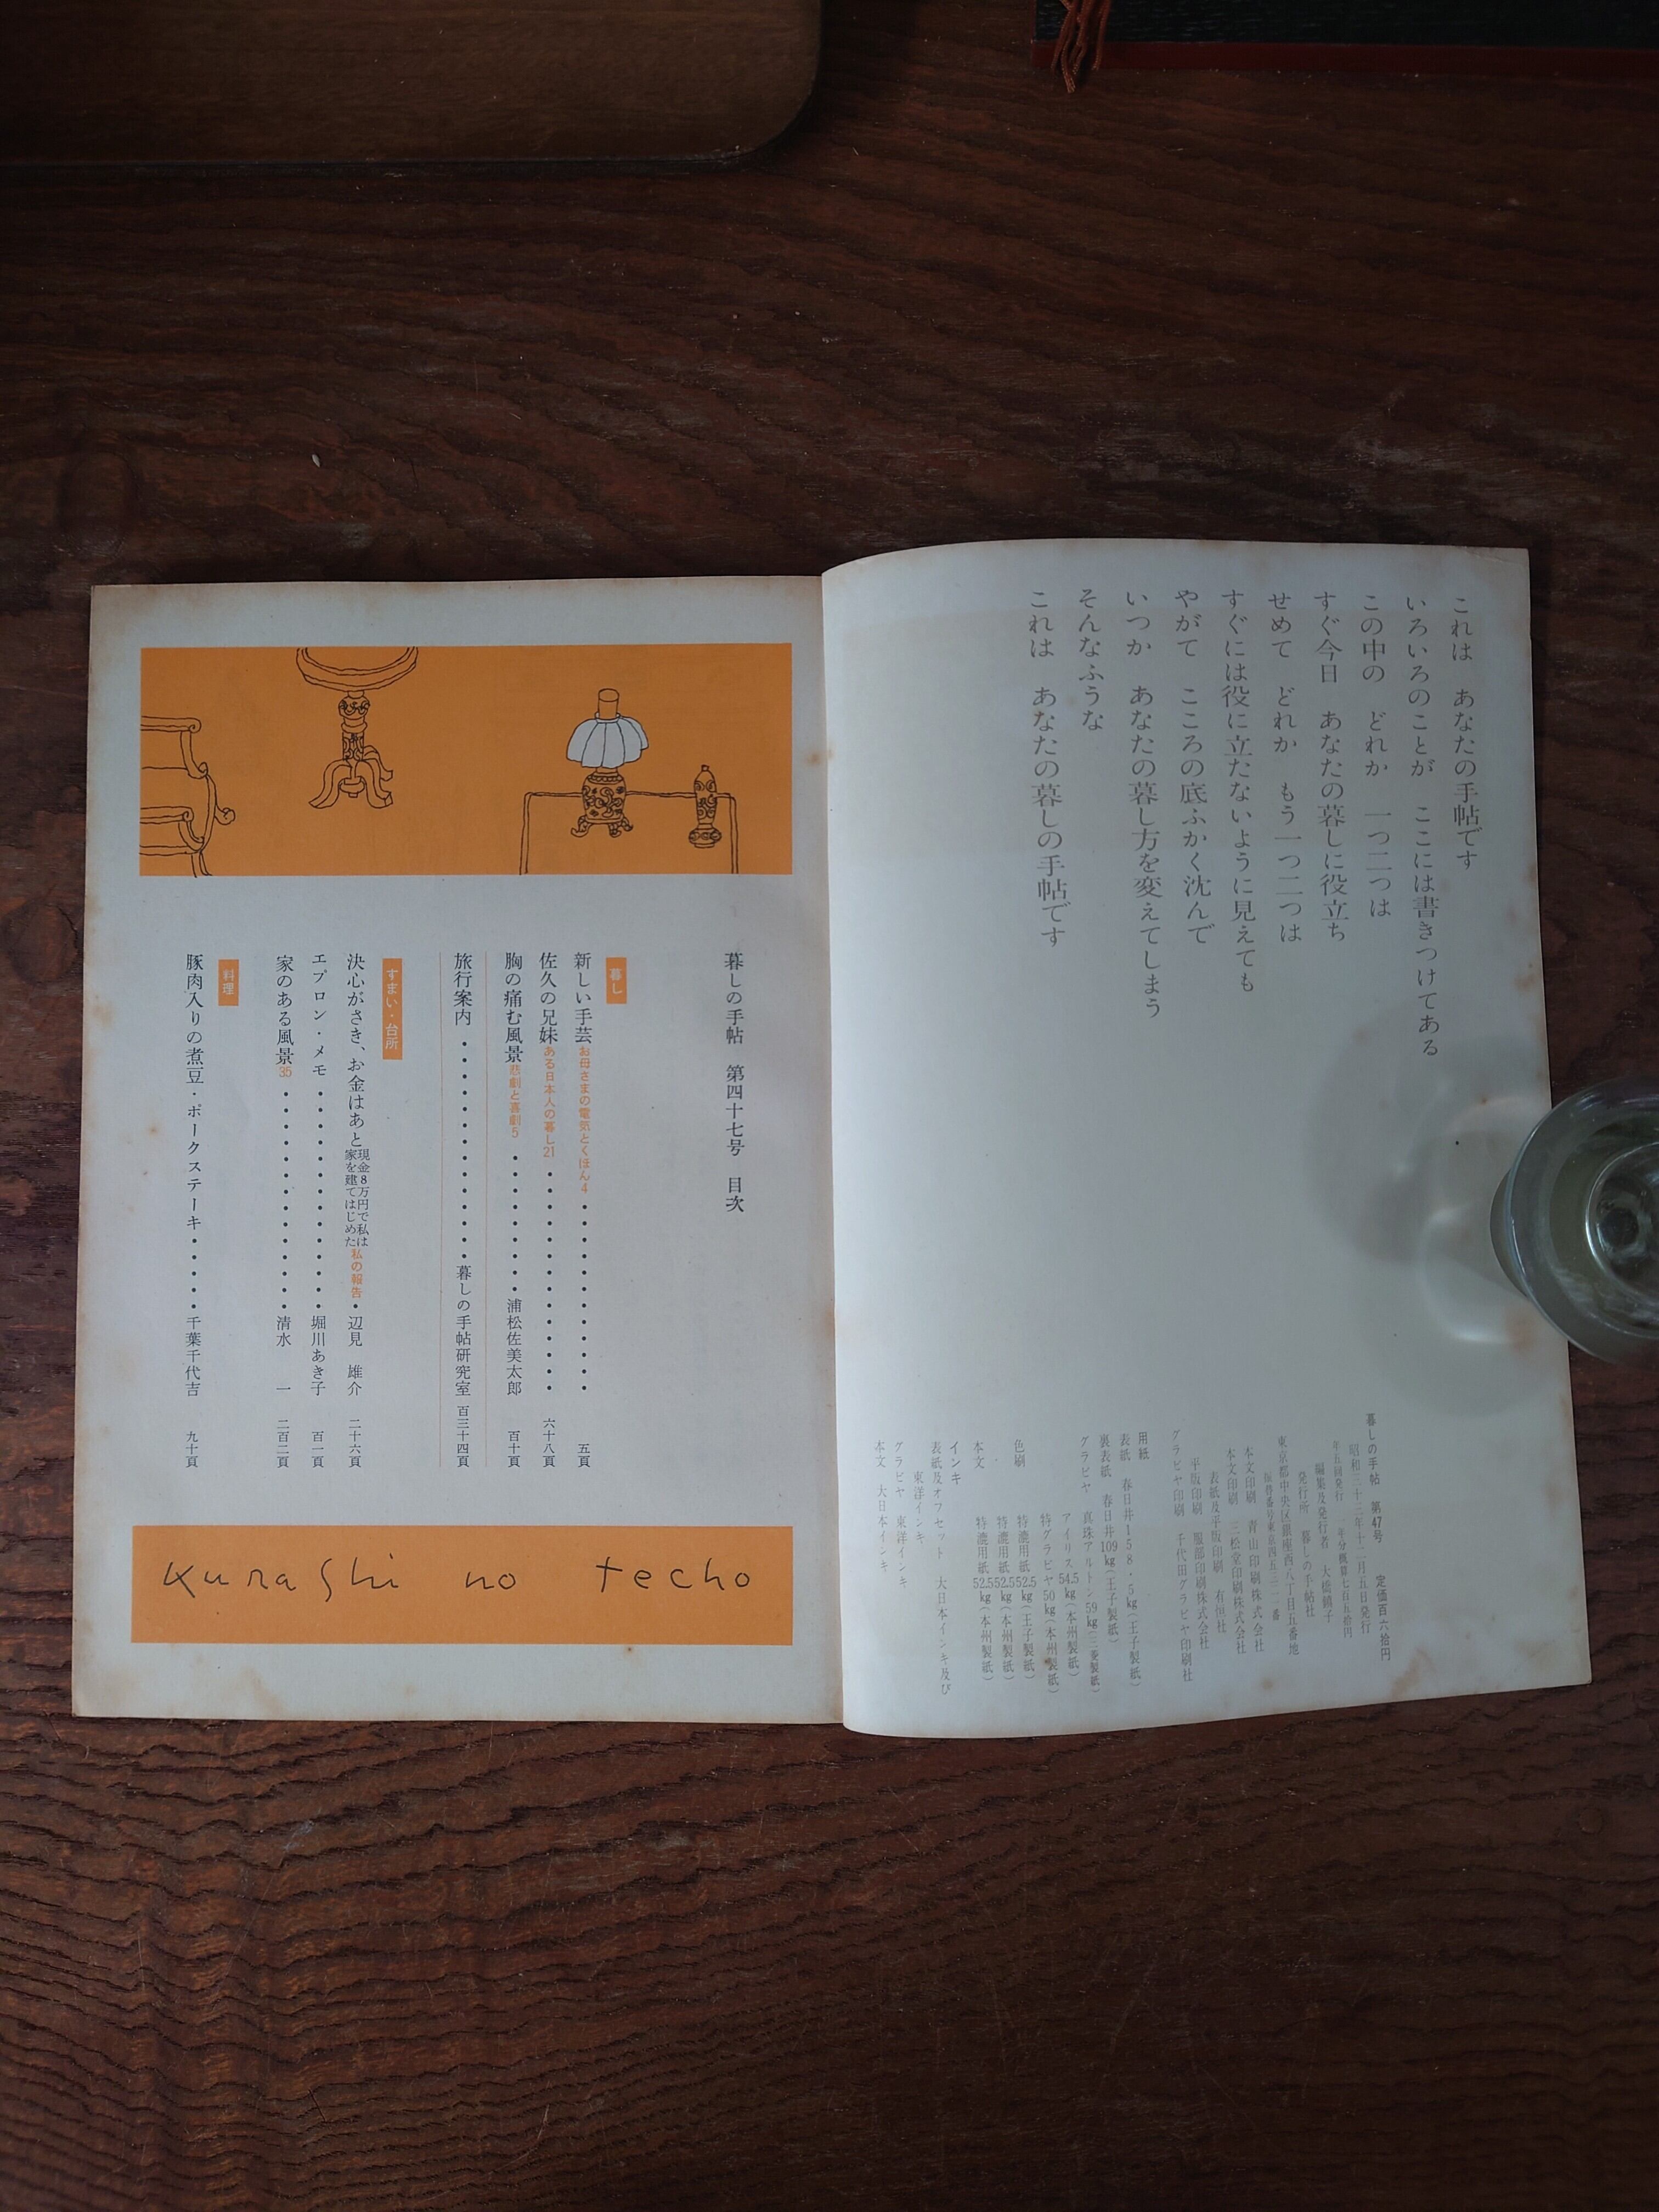 これは　あなたの手帖です
いろいろのことが　ここには書きつけてある
この中の　どれか　一つ二つは
すぐ今日　あなたの暮しに役立ち
せめて　どれか　もう一つ二つは
すぐには役に立たないように見えても
やがて　こころの底ふかく沈んで
いつか　あなたの暮し方を変えてしまう
そんなふうな
これは　あなたの暮しの手帖です
暮しの手帖　第47号　定価百六拾円
昭和三十三年十二月五日発行
年五回発行　一年分概算七百五拾円
編集及発行者　大橋鎭子
発行所　暮しの手帖社
東京都中央区銀座西八丁目五番地
本文印刷　青山印刷株式会社
本文印刷　三松堂印刷株式会社
表紙及平版印刷　有恒社
平版印刷　服部印刷株式会社
グラビヤ印刷　千代田グラビヤ印刷社
用紙
表紙　春日井158・5kg（王子製紙）
裏表紙　春日井109kg（王子製紙）
グラビヤ　真珠アルトン59kg（三菱製紙）
アイリス54.5kg（本州製紙）
特グラビヤ50kg（本州製紙）
色刷　特漉用紙52.5kg（王子製紙）
特漉用紙52.5kg（本州製紙）
本文　特漉用紙52.5kg（本州製紙）
インキ
表紙及オフセット　大日本インキ及び
東洋インキ
グラビヤ　東洋インキ
本文　大日本インキ
暮しの手帖　第四十七号　目次
暮し
新しい手芸 お母さまの電気とくほん4・・・・・・五頁
佐久の兄妹 ある日本人の暮し21・・・・・・六十八頁
胸の痛む風景 悲劇と喜劇5・・・・・浦松佐美太郎　百十頁
旅行案内・・・・・・・暮しの手帖研究室　百三十四頁
すまい・台所
決心がさき、お金はあと 現金8万円で私は家を建てはじめた 私の報告・辺見　雄介　二十六頁
エプロン・メモ・・・・・・・堀川あき子　百一頁
家のある風景35・・・・・・・清水　一　二百二頁
料理
豚肉入りの煮豆・ポークステーキ・・・・・千葉千代吉　九十頁
kurashi no techo